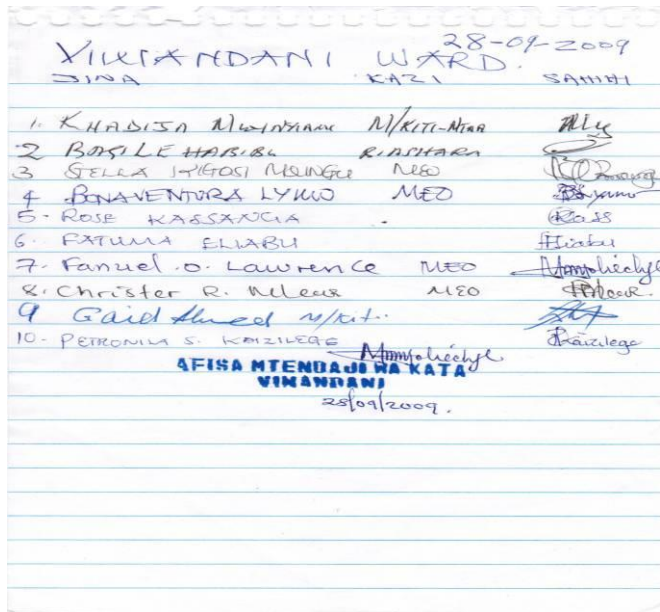 28-09-2009
VIWANDANI WARD.
JINA KAZI SAHIHI
1. KHADIJA M/KITI-MTAA
2 BASILE HABIBU BIASHARA
3 STELLA MEO
4 BONAVENTURA LYIMO MEO
5- ROSE KASSANGIA -
6. FATUMA ELIABU Eliabu
7. Fanuel .O. Lawrence MEO
8. Christer R. MEO
9 Said Ahmed M/Kiti..
10- PETRONILA S. KAIZILEGE Kaizilege
AFISA MTENDAJI WA KATA
VIWANDANI
28/09/2009.